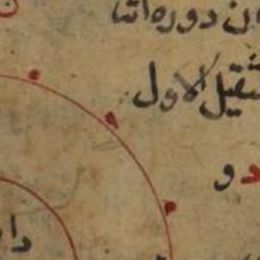 ن دوره اتنا
ثقيل الاول
د و
دا